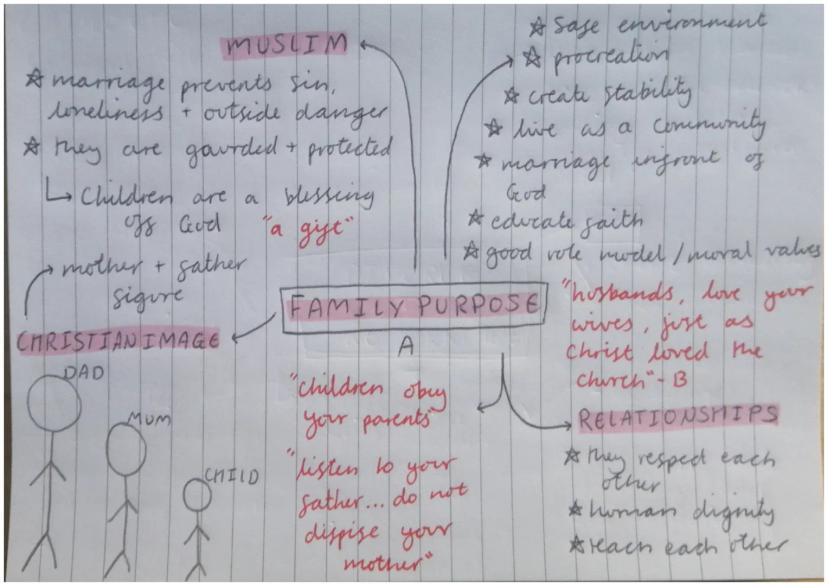 MUSLIM
☆ marriage prevents sin,
loneliness + outside danger
☆ they are gaurded + protected
↳ Children are a blessing
off God "a gift"
☆ safe environment
☆ procreation
☆ create stability
☆ live as a community
☆ marriage infront of
God
☆ educate faith
☆ good role model / moral values
→ mother + father
figure
CHRISTIAN IMAGE
DAD
MUM
CHILD
FAMILY PURPOSE
A
"children obey
your parents"
"listen to your
father... do not
dispise your
mother"
"husbands, love your
wives, just as
Christ loved the
church" - B
RELATIONSHIPS
☆ they respect each
other
☆ human dignity
☆ teach each other